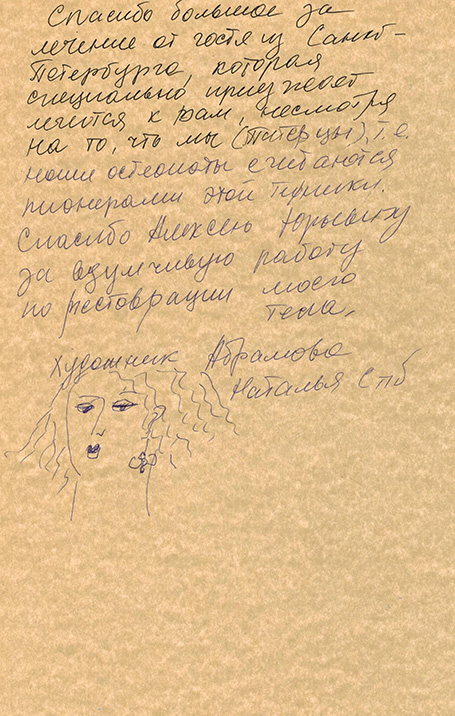 Спасибо большое за
лечение от гостя из Санкт-
Петербурга, которая
специально приезжает
лечится к вам, несмотря
на то, что мы (Питерцы), т.е.
наши остеопаты считаются
пионерами этой техники.
Спасибо Алексею Юрьевичу
за вдумчивую работу
по реставрации моего
тела.
Художник Абрамова
Наталья Спб